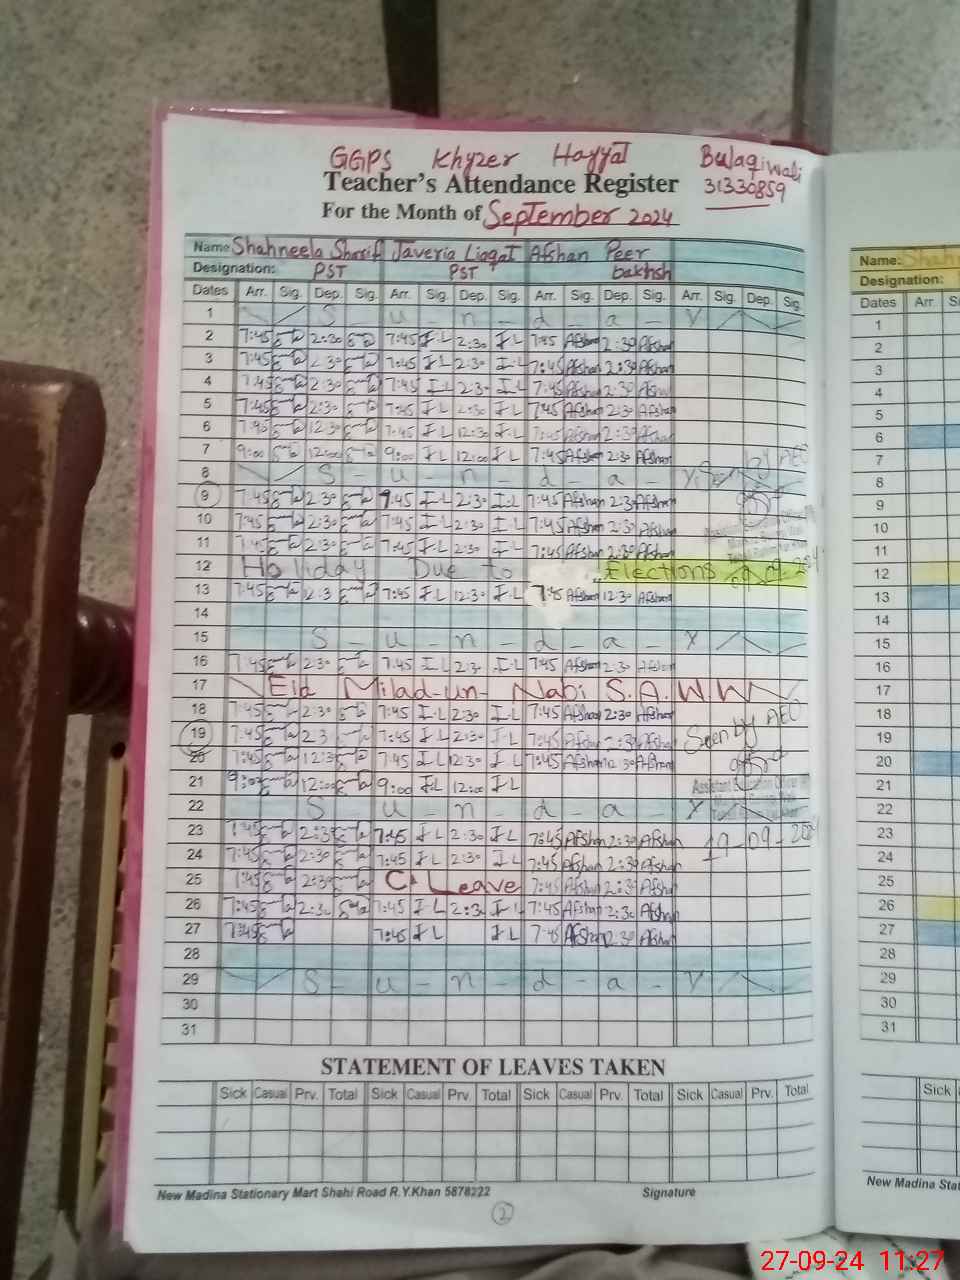 GGPS Khyzer Hayyat Bulaqiwali
Teacher's Attendance Register 31330859
For the Month of September 2024
Name: Shahneela Sharif Javeria Liaqat Afshan Peer
Designation: PST PST bakhsh
Dates Arr. Sig. Dep. Sig. Arr. Sig. Dep. Sig. Arr. Sig. Dep. Sig. Arr. Sig. Dep. Sig.
1 S - u - n - d - a - y
2 7:45 2:30 7:45 I.L 2:30 I.L 7:45 Afshan 2:30 Afshan
3 7:45 2:30 7:45 I.L 2:30 I.L 7:45 Afshan 2:30 Afshan
4 7:45 2:30 7:45 I.L 2:30 I.L 7:45 Afshan 2:30 Afshan
5 7:45 2:30 7:45 I.L 2:30 I.L 7:45 Afshan 2:30 Afshan
6 7:45 12:30 7:45 I.L 12:30 I.L 7:45 Afshan 2:30 Afshan
7 9:00 12:00 9:00 I.L 12:00 I.L 7:45 Afshan 2:30 Afshan
8 S - u - n - d - a - y Seen by AEO
9 7:45 2:30 7:45 I.L 2:30 I.L 7:45 Afshan 2:30 Afshan
10 7:45 2:30 7:45 I.L 2:30 I.L 7:45 Afshan 2:30 Afshan
11 7:45 2:30 7:45 I.L 2:30 I.L 7:45 Afshan 2:30 Afshan
12 Holiday Due to Elections 09.09.2024
13 7:45 12:3 7:45 I.L 12:30 I.L 7:45 Afshan 12:30 Afshan
14
15 S - u - n - d - a - y
16 7:45 2:30 7:45 I.L 2:30 I.L 7:45 Afshan 2:30 Afshan
17 Eid Milad-un-Nabi S.A.W.W
18 7:45 2:30 7:45 I.L 2:30 I.L 7:45 Afshan 2:30 Afshan
19 7:45 2:3 7:45 I.L 2:30 I.L 7:45 Afshan 2:30 Afshan Seen by AEO
20 7:45 12:30 7:45 I.L 12:30 I.L 7:45 Afshan 12:30 Afshan
21 9:00 12:00 9:00 I.L 12:00 I.L Assistant Education Officer
22 S - u - n - d - a - y
23 7:45 2:30 7:45 I.L 2:30 I.L 7:45 Afshan 2:30 Afshan 19-09-2024
24 7:45 2:30 7:45 I.L 2:30 I.L 7:45 Afshan 2:30 Afshan
25 7:45 2:30 C. Leave 7:45 Afshan 2:30 Afshan
26 7:45 2:30 7:45 I.L 2:30 I.L 7:45 Afshan 2:30 Afshan
27 7:45 7:45 I.L I.L 7:45 Afshan 2:30 Afshan
28
29 S - u - n - d - a - y
30
31
STATEMENT OF LEAVES TAKEN
Sick Casual Prv. Total Sick Casual Prv. Total Sick Casual Prv. Total Sick Casual Prv. Total
New Madina Stationary Mart Shahi Road R.Y.Khan 5878222 Signature
2
Name:
Designation:
Dates Arr.
1
2
3
4
5
6
7
8
9
10
11
12
13
14
15
16
17
18
19
20
21
22
23
24
25
26
27
28
29
30
31
Sick
New Madina
27-09-24 11:27